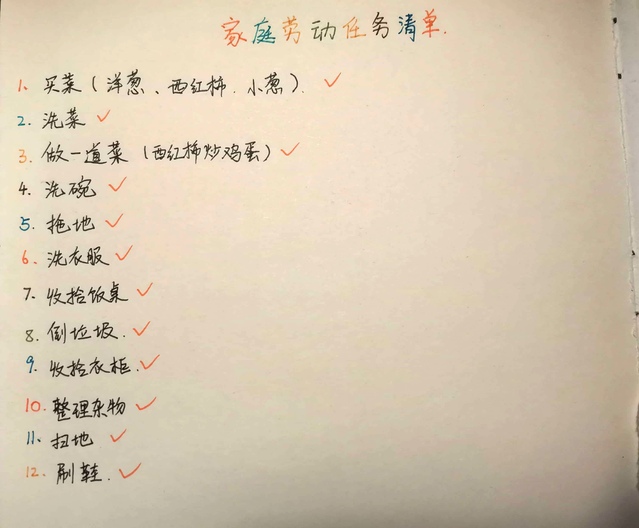 家庭劳动任务清单.
1. 买菜(洋葱、西红柿.小葱). ✓
2. 洗菜 ✓
3. 做一道菜(西红柿炒鸡蛋) ✓
4. 洗碗 ✓
5. 拖地 ✓
6. 洗衣服 ✓
7. 收拾饭桌 ✓
8. 倒垃圾. ✓
9. 收拾衣柜. ✓
10. 整理杂物 ✓
11. 扫地 ✓
12. 刷鞋. ✓